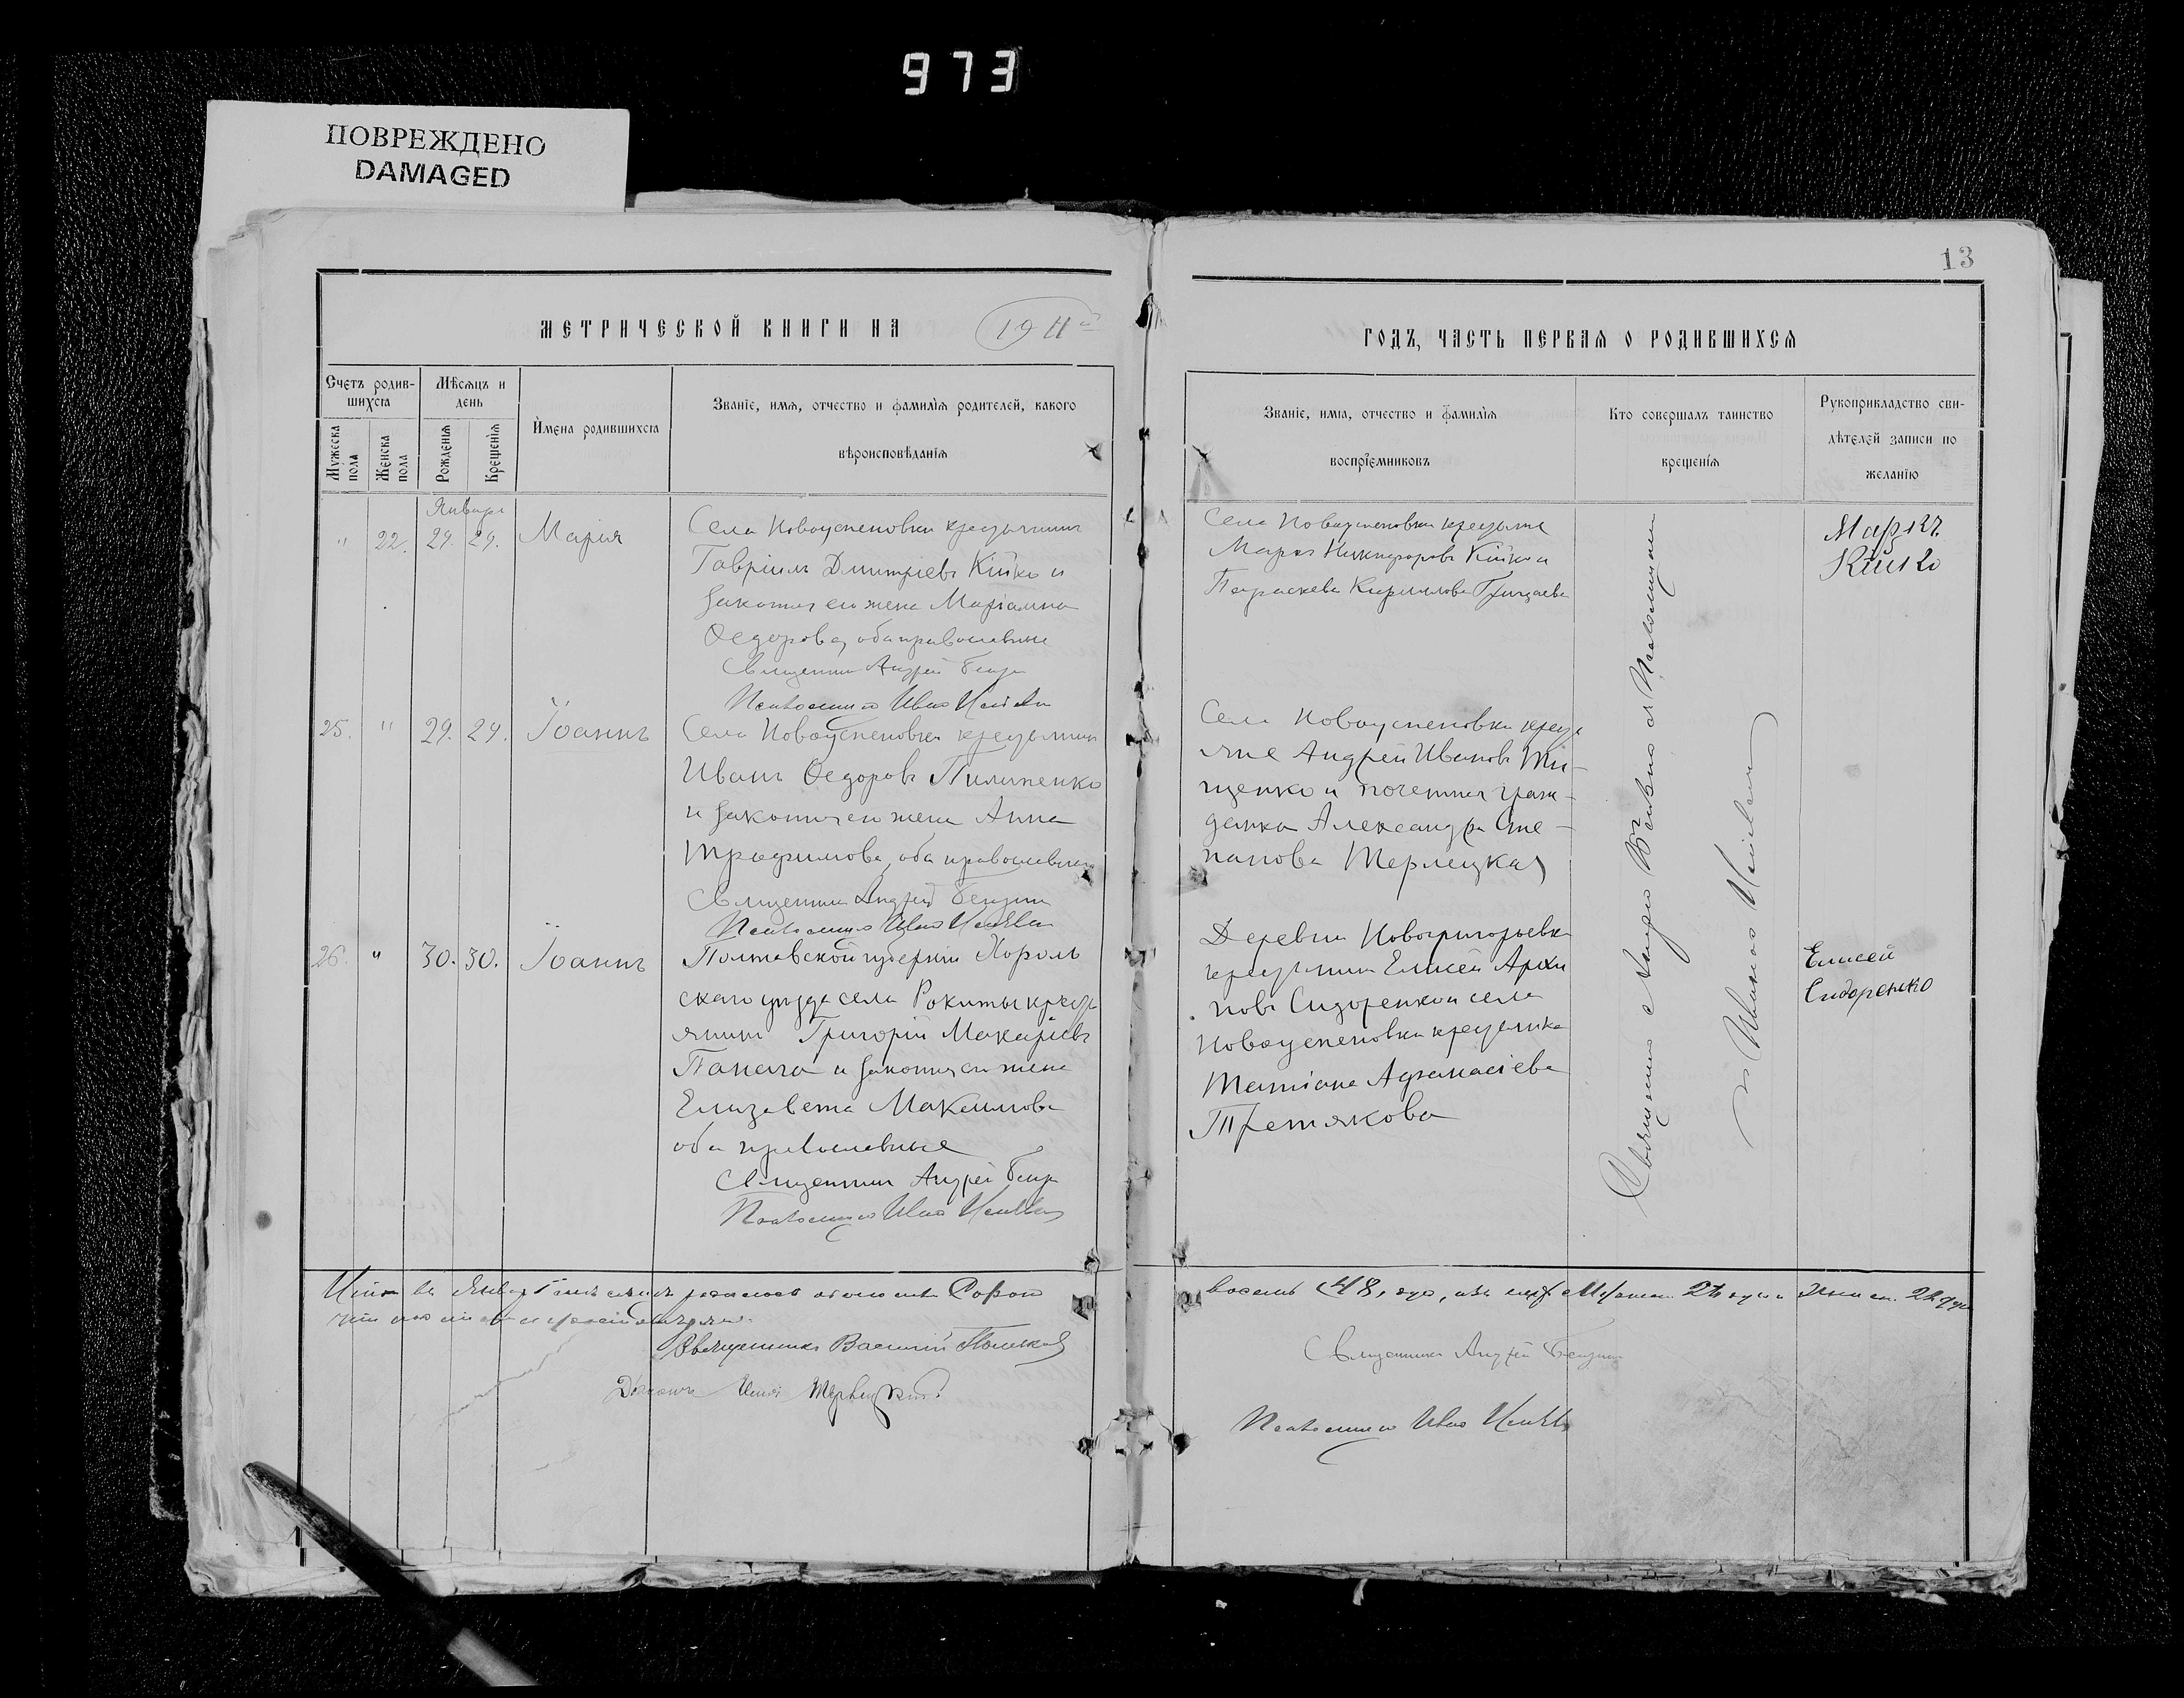 973
ПОВРЕЖДЕНО
DAMAGED
13
МЕТРИЧЕСКОЙ КНИГИ НА 1911й
ГОДЪ, ЧАСТЬ ПЕРВАЯ О РОДИВШИХСЯ
Счетъ родив-
шихся
Мѣсяцъ и
день
Мужеска
пола
Женска
пола
Рожденія
Крещенія
Имена родившихся
Званіе, имя, отчество и фамилія родителей, какого
вѣроисповѣданія
Званіе, имя, отчество и фамилія
воспріемниковъ
Кто совершалъ таинство
крещенія
Рукоприкладство сви-
дѣтелей записи по
желанію
Январь
" 22. 29. 29. Марія
Села Новоуспеновки крестьянинъ
Гавріилъ Дмитріевъ Кійко и
законная его жена Маріамна
Федорова, оба православные
Священникъ Андрей
Псаломщикъ Иванъ
Села Новоуспеновки крестьяне
Маркъ Никифоровъ Кійко и
Параскева Кириллова
Маркъ
Кійко
25. " 29. 29. Іоаннъ
Села Новоуспеновки крестьянинъ
Иванъ Федоровъ Пилипенко
и законная его жена Анна
Трофимова, оба православные
Священникъ Андрей
Псаломщикъ Иванъ
Села Новоуспеновки кресть
яне Андрей Ивановъ Ти-
щенко и почетная граж-
данка Александра Сте-
панова Терлецкая
26. " 30. 30. Іоаннъ
Полтавской губерніи Хороль
скаго уѣзда села Рокиты кресть
янинъ Григорій Макаріевъ
Панага и законная его жена
Елизавета Максимова
оба православные
Священникъ Андрей
Псаломщикъ Иванъ
Деревни Новогригорьевки
крестьянинъ Елисей Архи
повъ Сидоренко и села
Новоуспеновки крестьянка
Татіана Афанасіева
Третякова
Елисей
Сидоренко
Священникъ Андрей съ Псаломщикомъ
Иваномъ
Итого въ Январѣ мѣсяцѣ родилось обоего пола Сорокъ
восемь 48, душ, изъ нихъ Мужеск. 26 душ и Женск. 22 душ
Священникъ Василій
Діаконъ
Священникъ Андрей
Псаломщикъ Иванъ